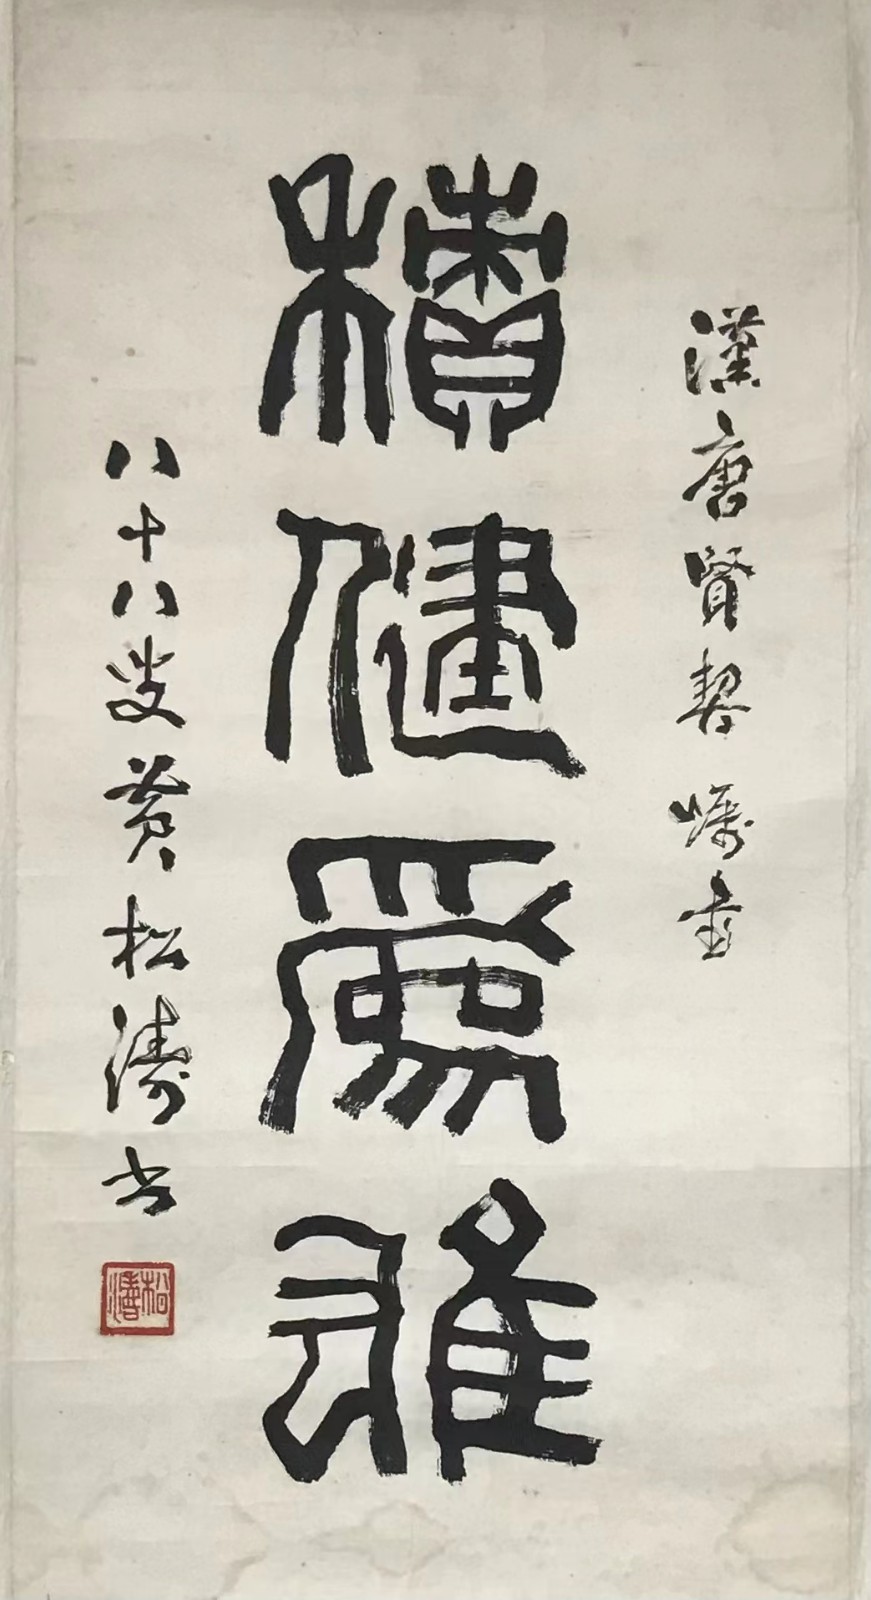 漢唐賢契囑書
積健為雄
八十八叟黄松濤书
松濤